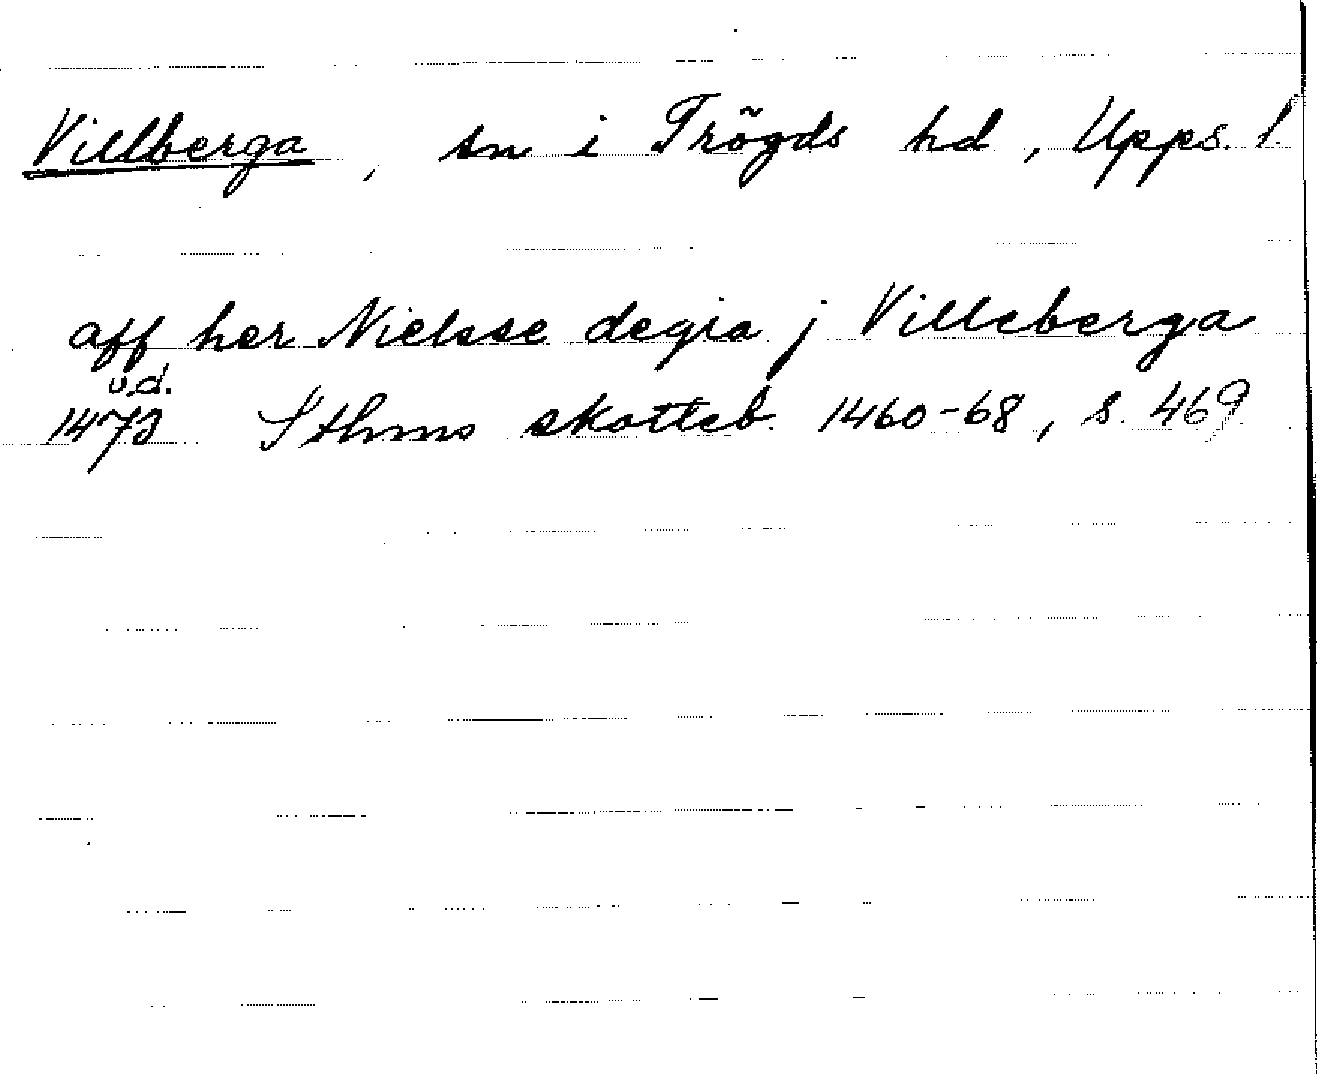 Villberga, sn i Trögds hd, Upps. l.
aff her Nielsse degra j Villeberga
u.d.
1473 Sthms skotteb. 1460-68, s. 469